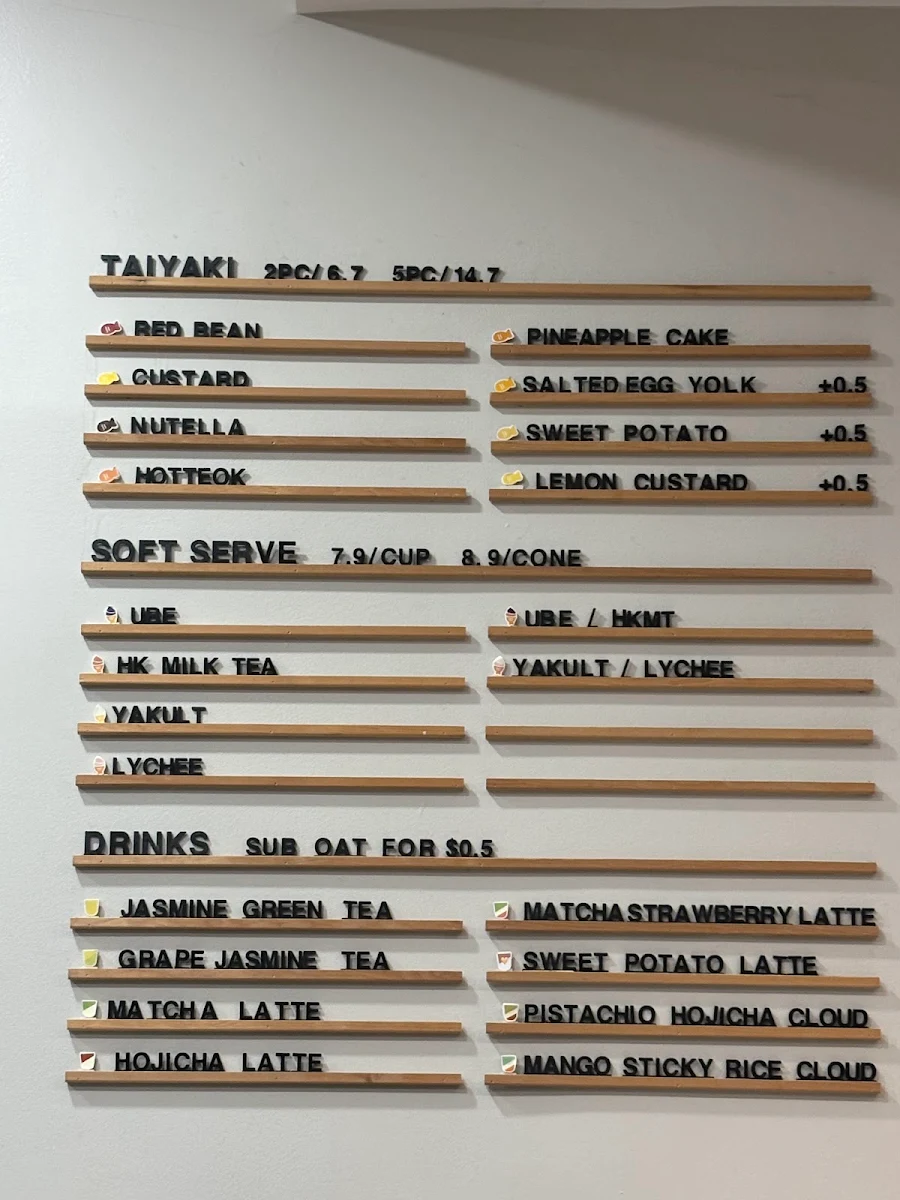 TAIYAKI 2PC/6.7 5PC/14.7
RED BEAN
CUSTARD
NUTELLA
HOTTEOK
PINEAPPLE CAKE
SALTED EGG YOLK +0.5
SWEET POTATO +0.5
LEMON CUSTARD +0.5
SOFT SERVE 7.9/CUP 8.9/CONE
UBE
HK MILK TEA
YAKULT
LYCHEE
UBE / HKMT
YAKULT / LYCHEE
DRINKS SUB OAT FOR $0.5
JASMINE GREEN TEA
GRAPE JASMINE TEA
MATCHA LATTE
HOJICHA LATTE
MATCHA STRAWBERRY LATTE
SWEET POTATO LATTE
PISTACHIO HOJICHA CLOUD
MANGO STICKY RICE CLOUD